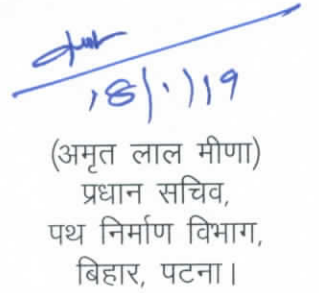 18/1/19
(अमृत लाल मीणा)
प्रधान सचिव,
पथ निर्माण विभाग,
बिहार, पटना।